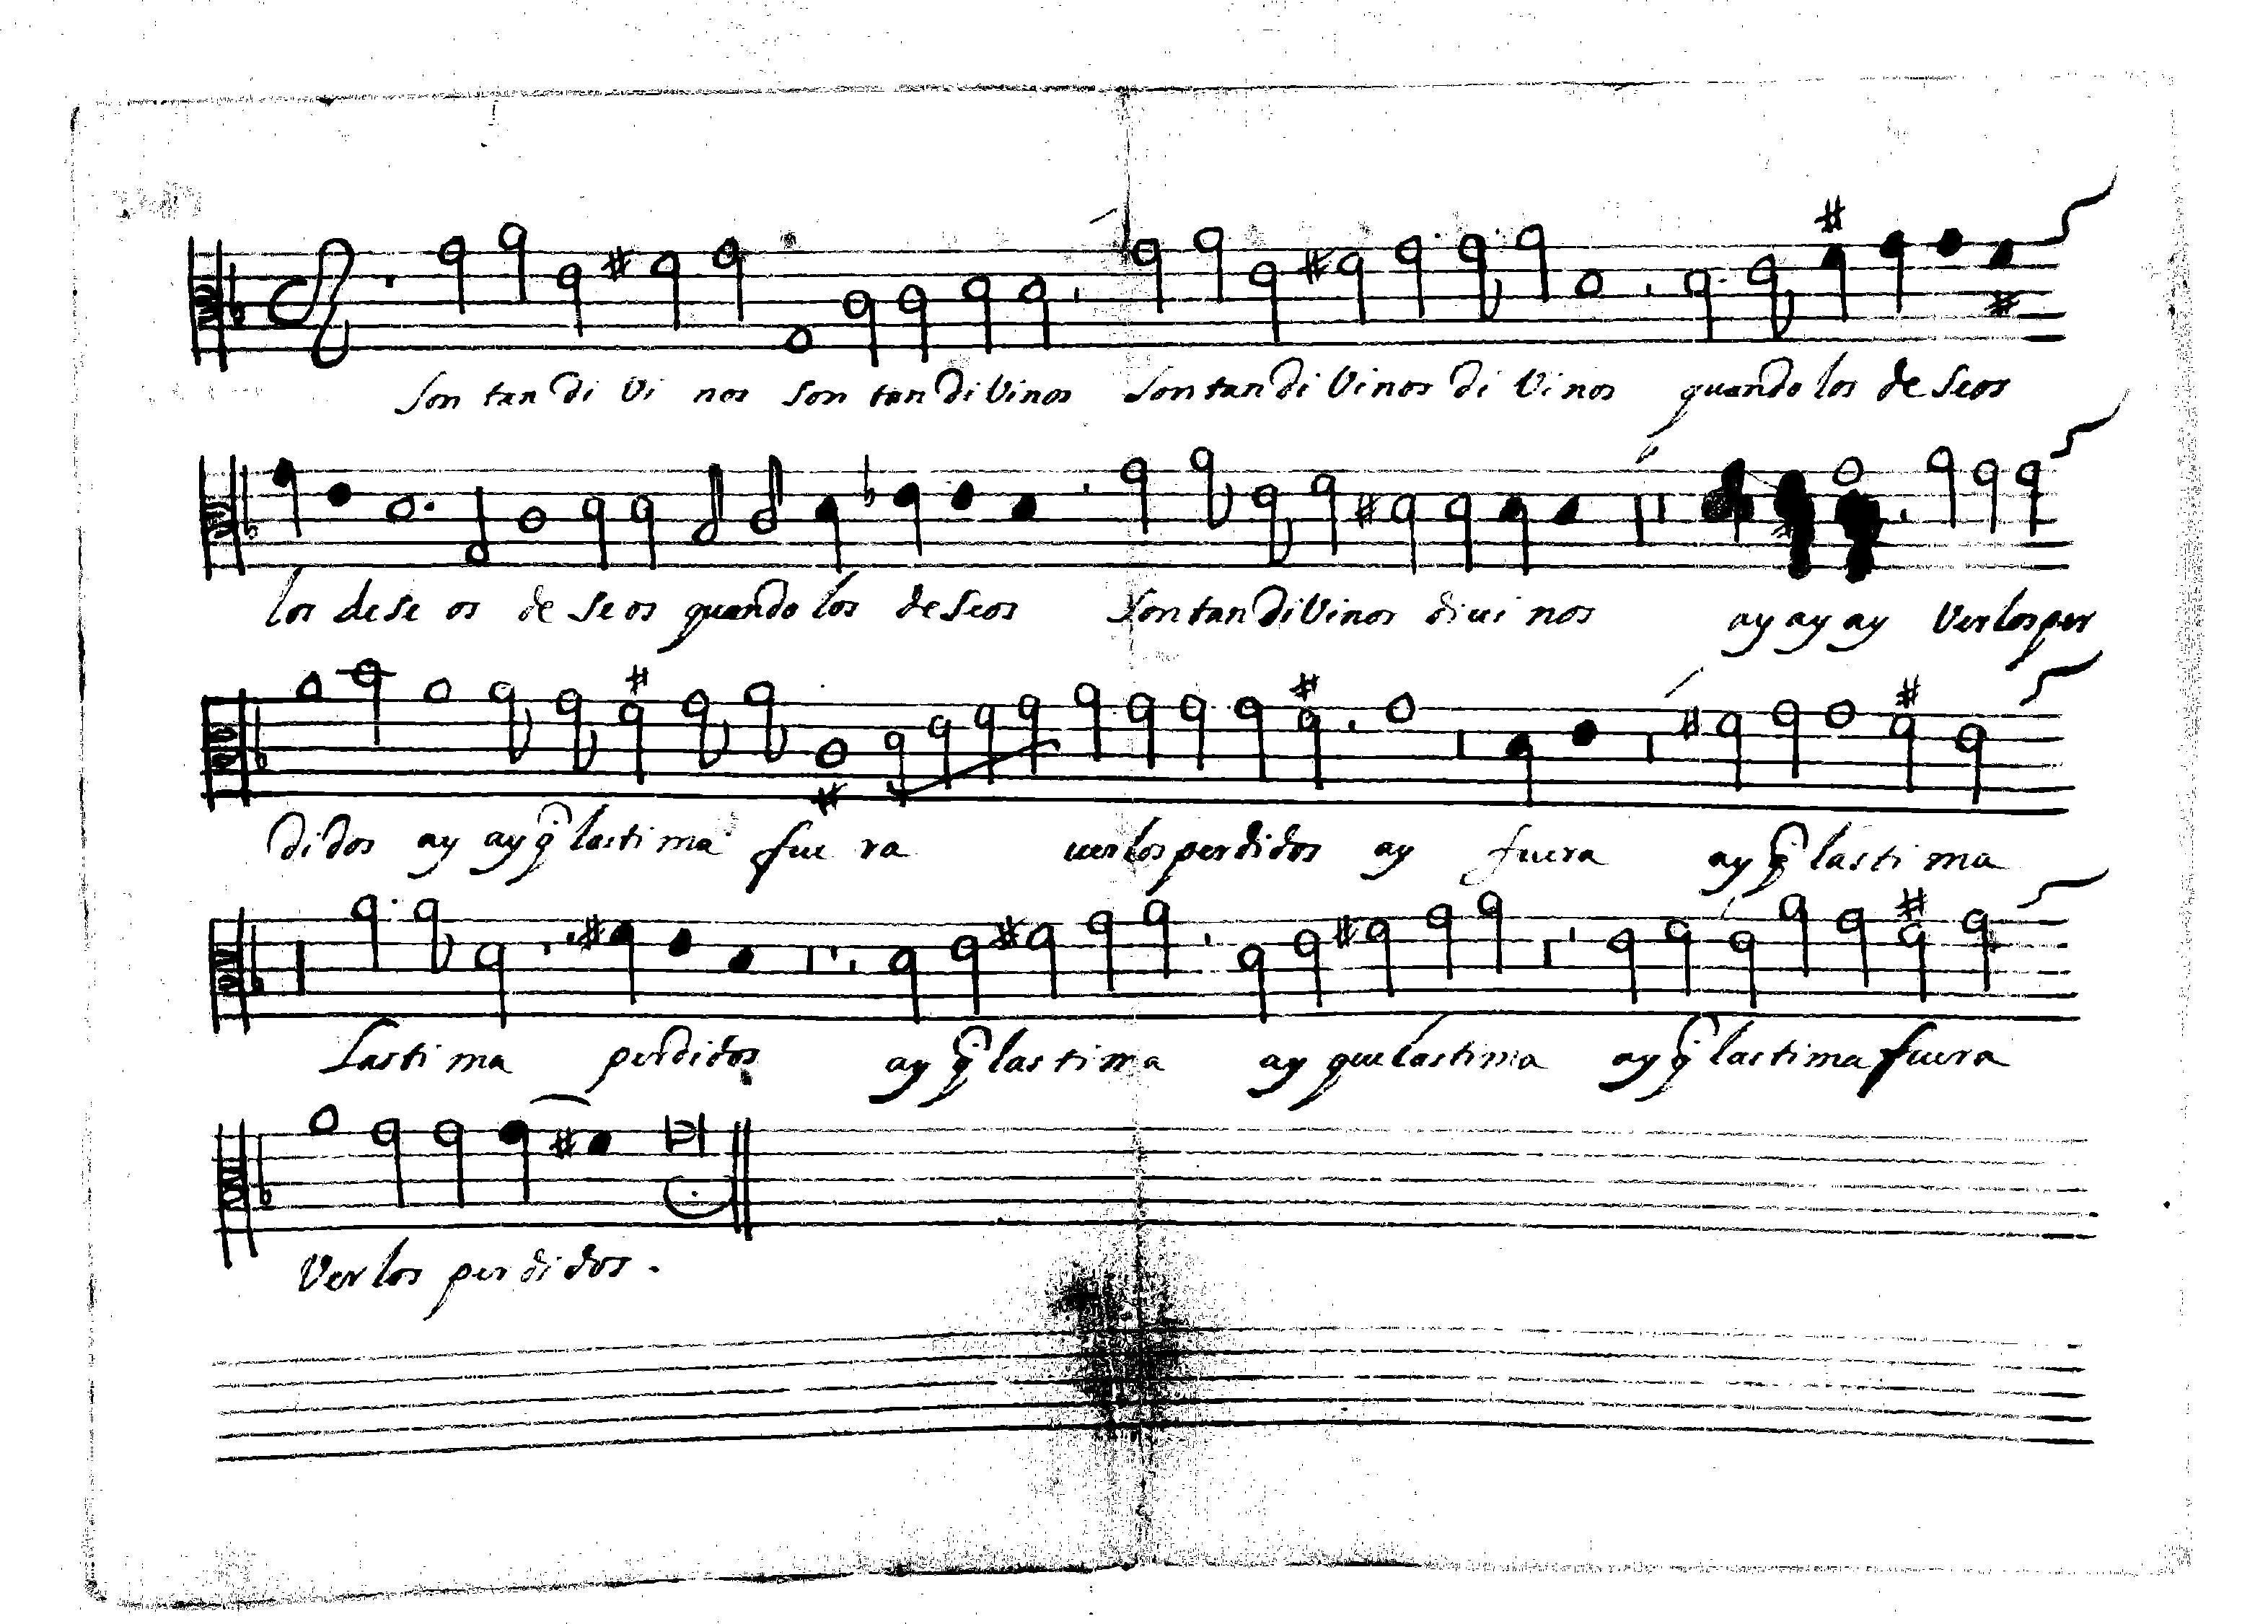 son tan di vi nos son tan divinos son tan di vinos di vinos quando los deseos
los dese os de se os quando los deseos son tan divinos diui nos ay ay ay ver los per
didos ay ay q̃ lastima fue ra uer los perdidos ay fuera ay q̃ lasti ma
Lasti ma perdidos ay q̃ las tima ay que lastima ay q̃ lastima fuera
Ver los perdidos.